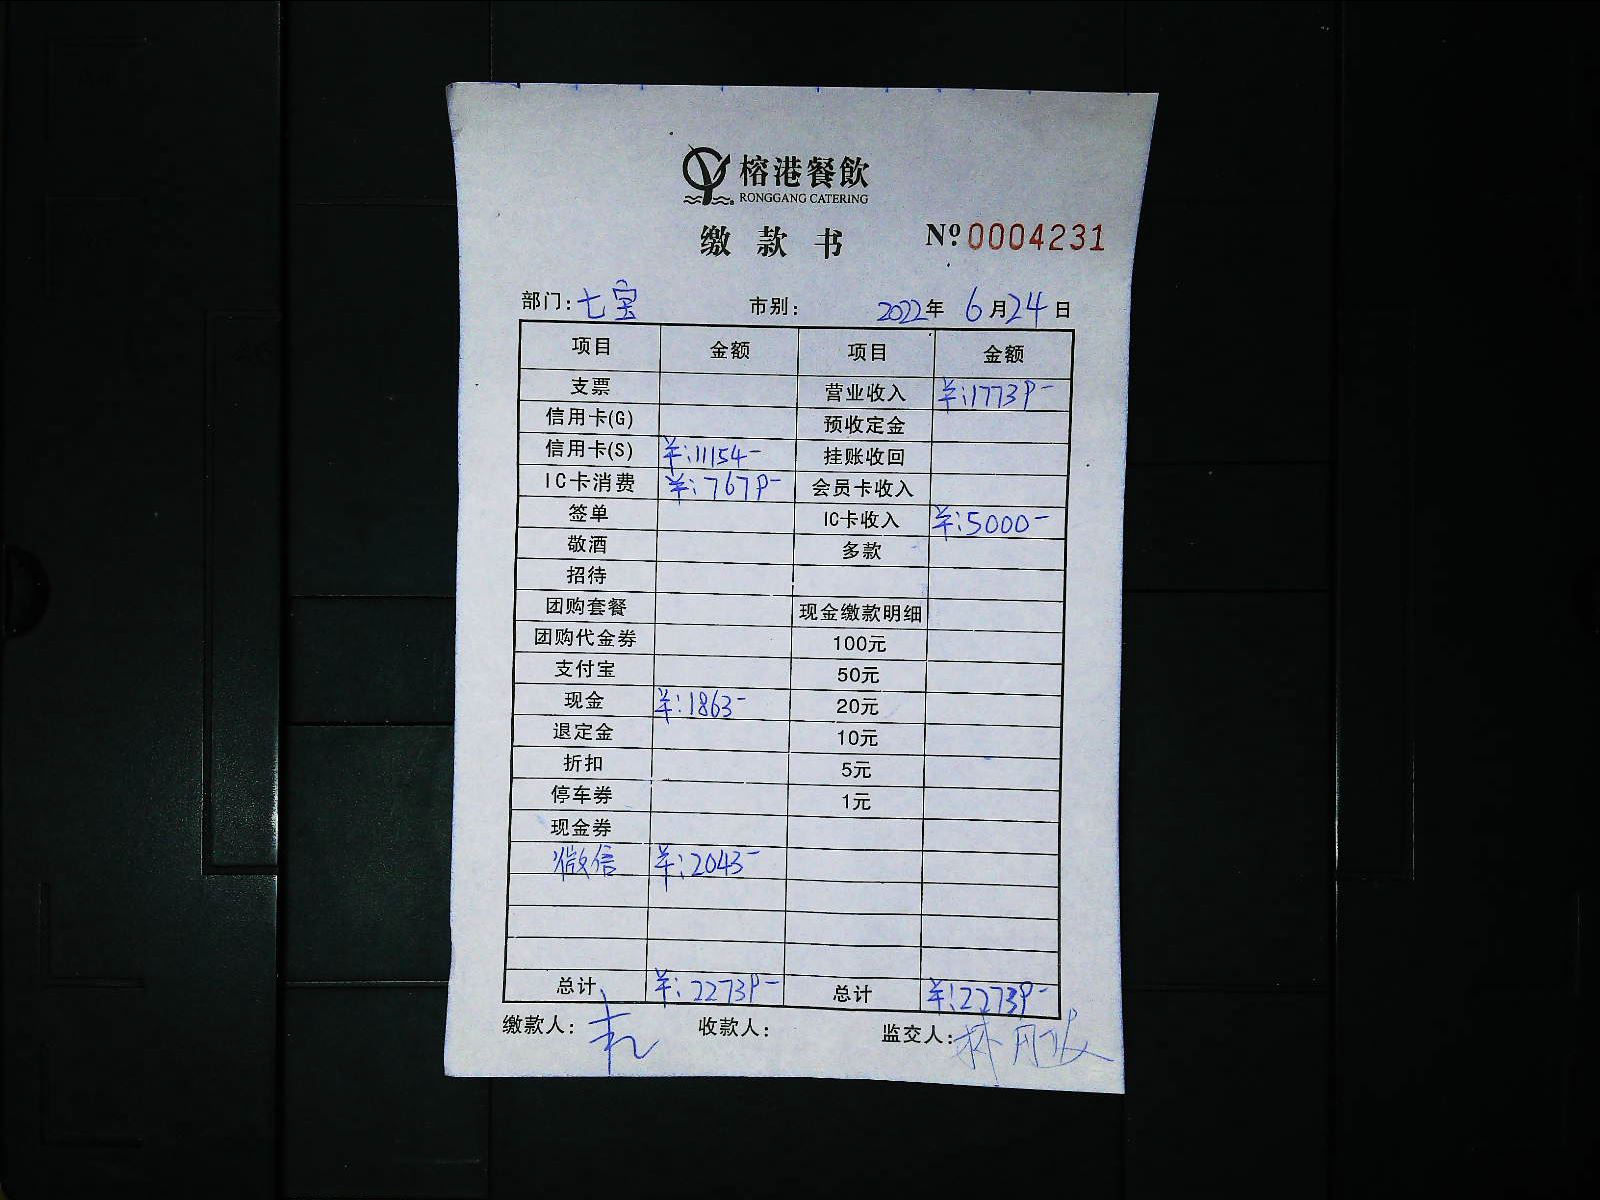 榕港餐飲
RONGGANG CATERING
缴款书 Nº 0004231
部门: 七宝 市别: 2022年 6月24日
项目 金额 项目 金额
支票 营业收入 ¥:17739-
信用卡(G) 预收定金
信用卡(S) ¥:11154- 挂账收回
IC卡消费 ¥:7679- 会员卡收入
签单 IC卡收入 ¥:5000-
敬酒 多款
招待
团购套餐 现金缴款明细
团购代金券 100元
支付宝 50元
现金 ¥:1863- 20元
退定金 10元
折扣 5元
停车券 1元
现金券
微信 ¥:2043-
总计 ¥:22739- 总计 ¥:22739-
缴款人: 收款人: 监交人: